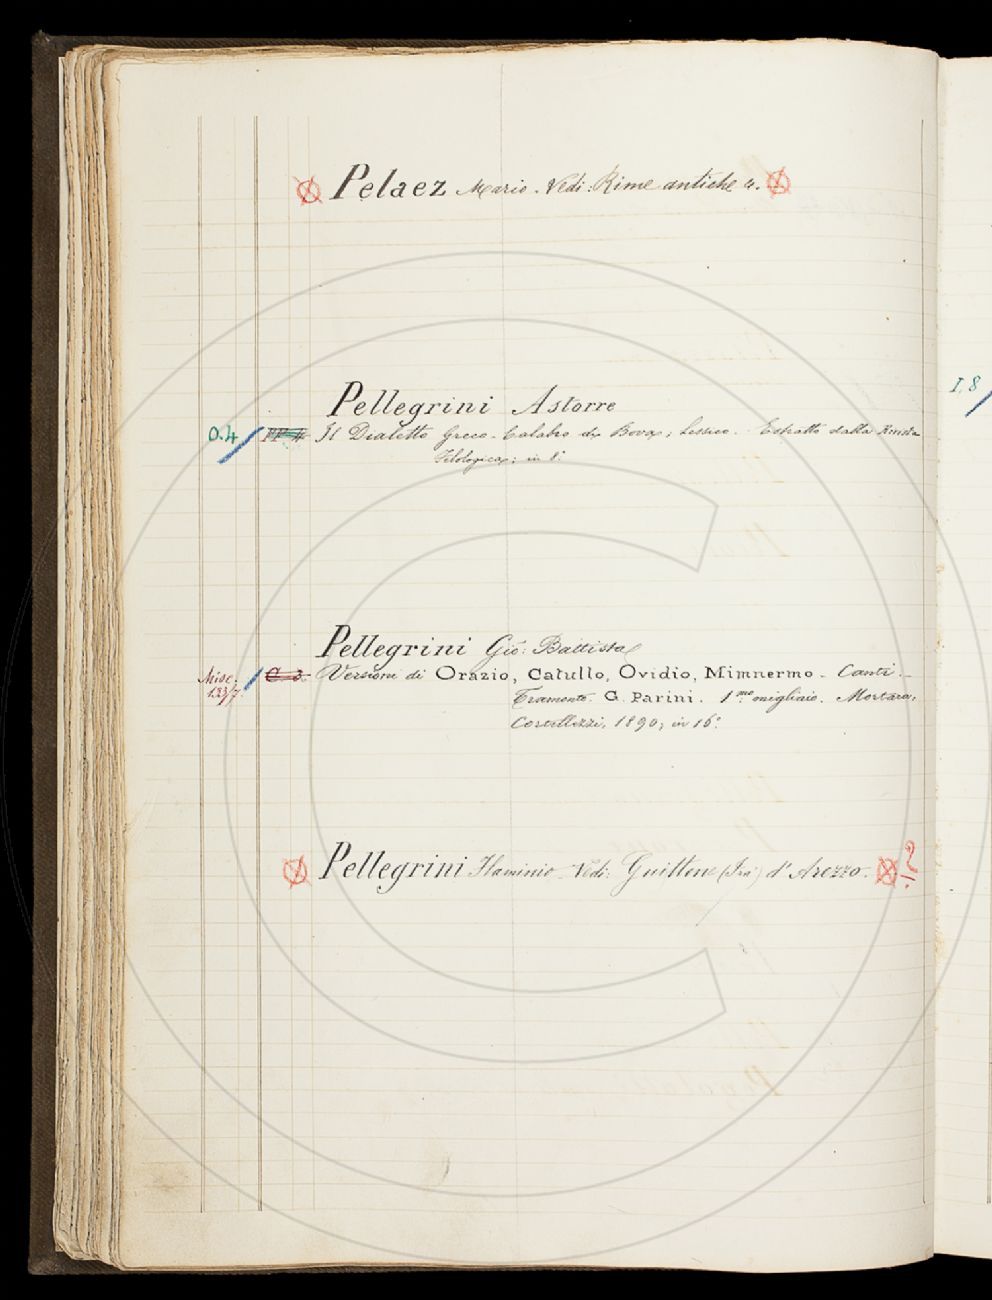 Pelaez Mario. Vedi: Rime antiche 4.
I, 8
Pellegrini Astorre
O.4 Il Dialetto Greco-Calabro di Bova; Lessico. Estratto dalla Rivista
Filologica; in 8°
Pellegrini Gio: Battista
Misc. C. 3. Versioni di Orazio, Catullo, Ovidio, Mimnermo - Canti -
133/7. Tramonto. G. Parini. 1mo migliaio. Mortara,
Cortellezzi, 1890; in 16°
Pellegrini Flaminio - Vedi: Guittone (Fra) d'Arezzo. ?